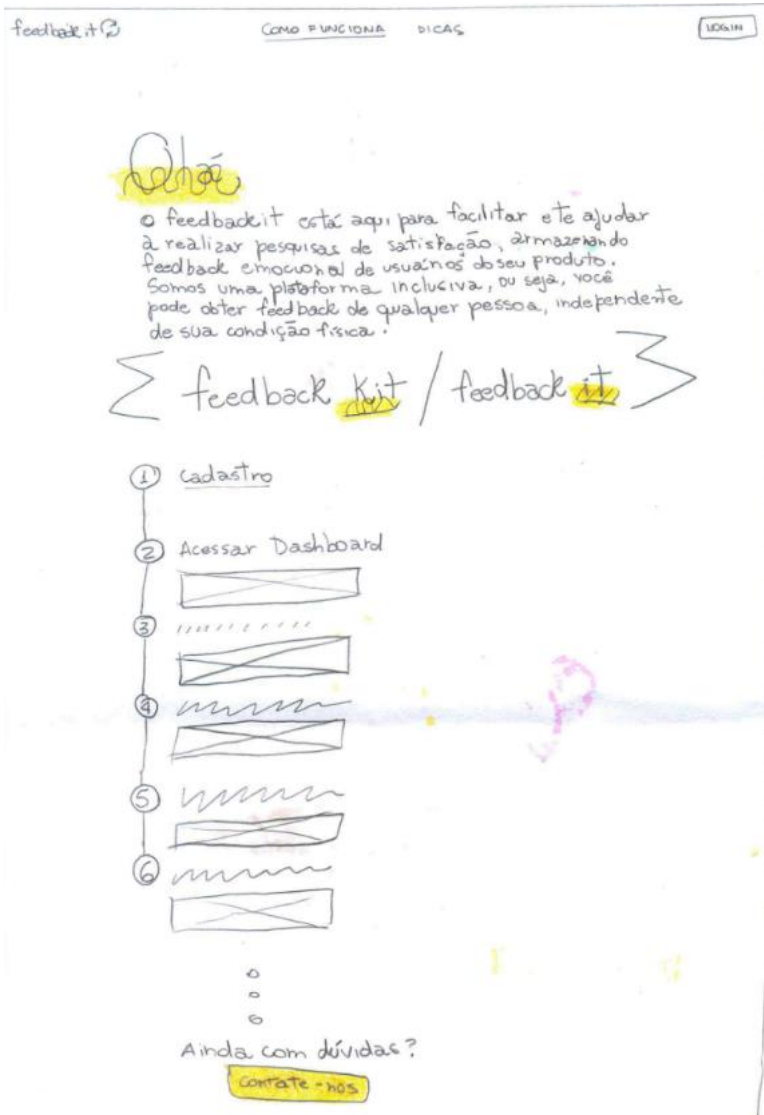 feedback.it
COMO FUNCIONA DICAS
LOGIN
o feedbackit está aqui para facilitar e te ajudar
à realizar pesquisas de satisfação, armazenando
feedback emocional de usuários do seu produto.
Somos uma plataforma inclusiva, ou seja, você
pode obter feedback de qualquer pessoa, independente
de sua condição física.
feedback kit / feedback it
1 cadastro
2 Acessar Dashboard
3
4
5
6
Ainda com dúvidas?
contate-nos